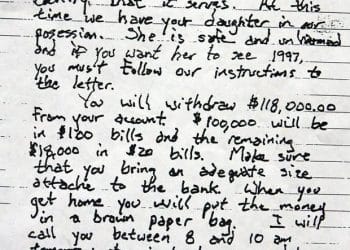 that it serves. At this
time we have your daughter in our
posession. She is safe and unharmed
and if you want her to see 1997,
you must follow our instructions to
the letter.
You will withdraw $118,000.00
from your account. $100,000 will be
in $100 bills and the remaining
$18,000 in $20 bills. Make sure
that you bring an adequate size
attache to the bank. When you
get home you will put the money
in a brown paper bag. I will
call you between 8 and 10 am